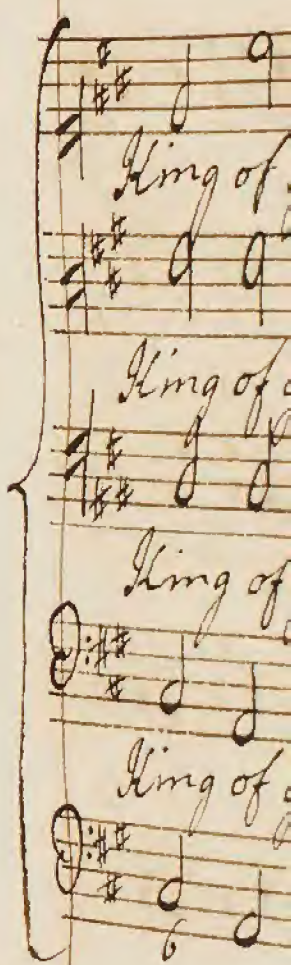 King of
King of
King of
King of
6